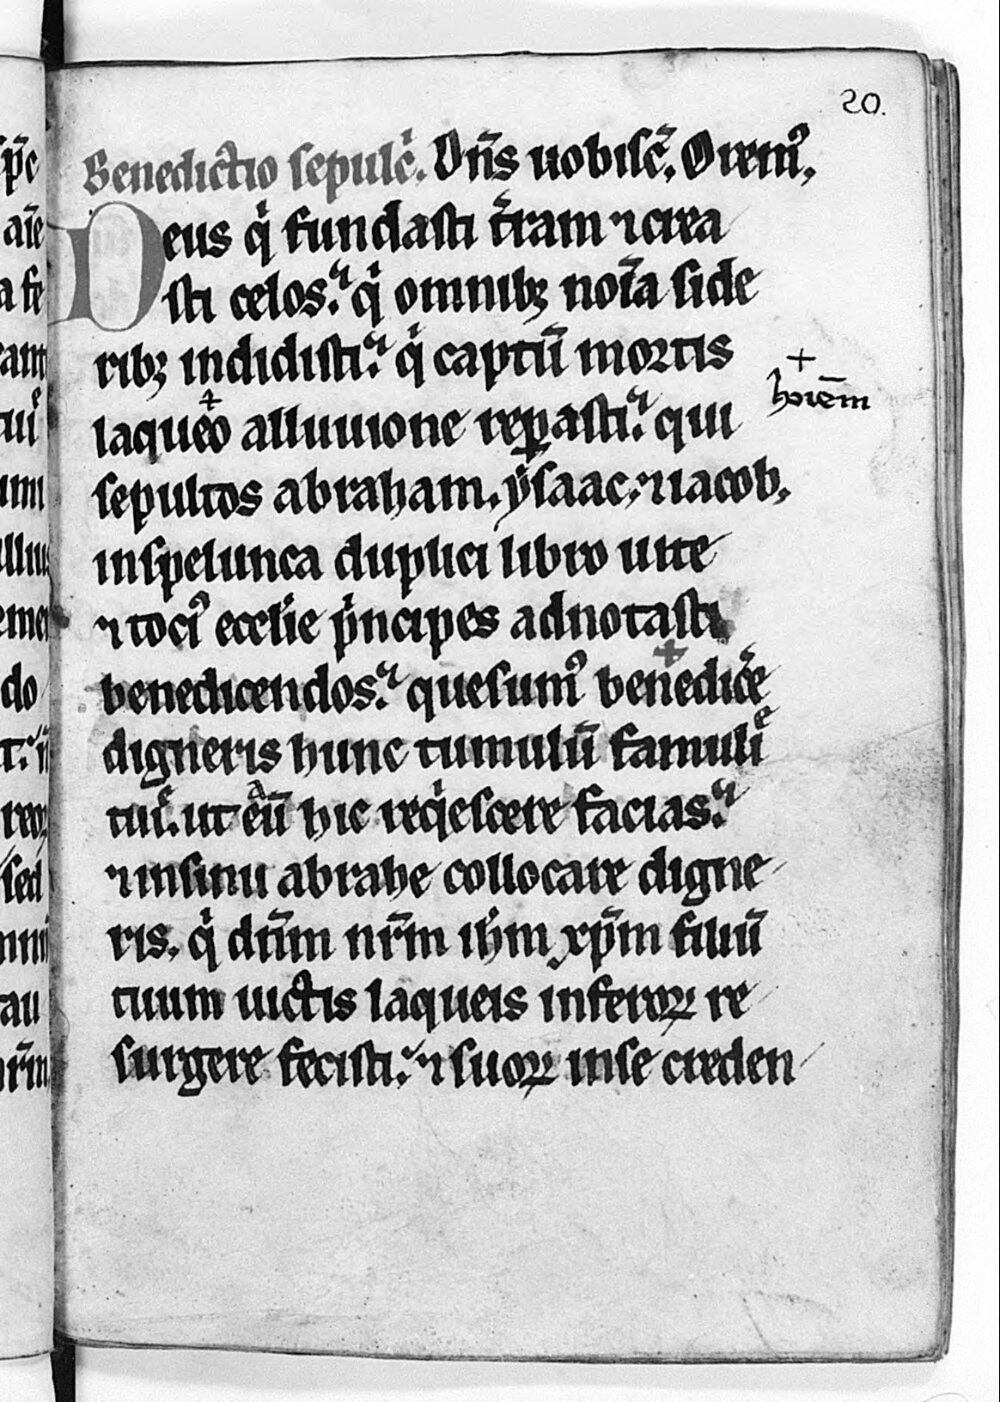 20.
Benedictio sepulc̄. Dn̄s uobisc̄. Orem᷒.
Deus q̇ fundasti t̄ram ⁊ crea
sti celos. q̇ omnibꝫ noı̄a side
ribꝫ indidisti. q̇ captū mortis
+
hoiēm
laqueo alluuione reꝑasti. qui
sepultos abraham. ẏsaac. ⁊ iacob.
inspelunca duplici libro uite
⁊ toci᷒ eccl̄ie pͥncipes adnotasti
benedicendos. quesum᷒ benedic̄e
digneris hunc tumulū famuli
tui. ut eū hic req̇escere facias.
⁊ insinu abrahe collocare digne
ris. q̇ dn̄m nr̄m ihm̄ xp̄m filiū
tuum uictis laqueis inferoꝝ re
surgere fecisti. ⁊ suoꝝ inse creden